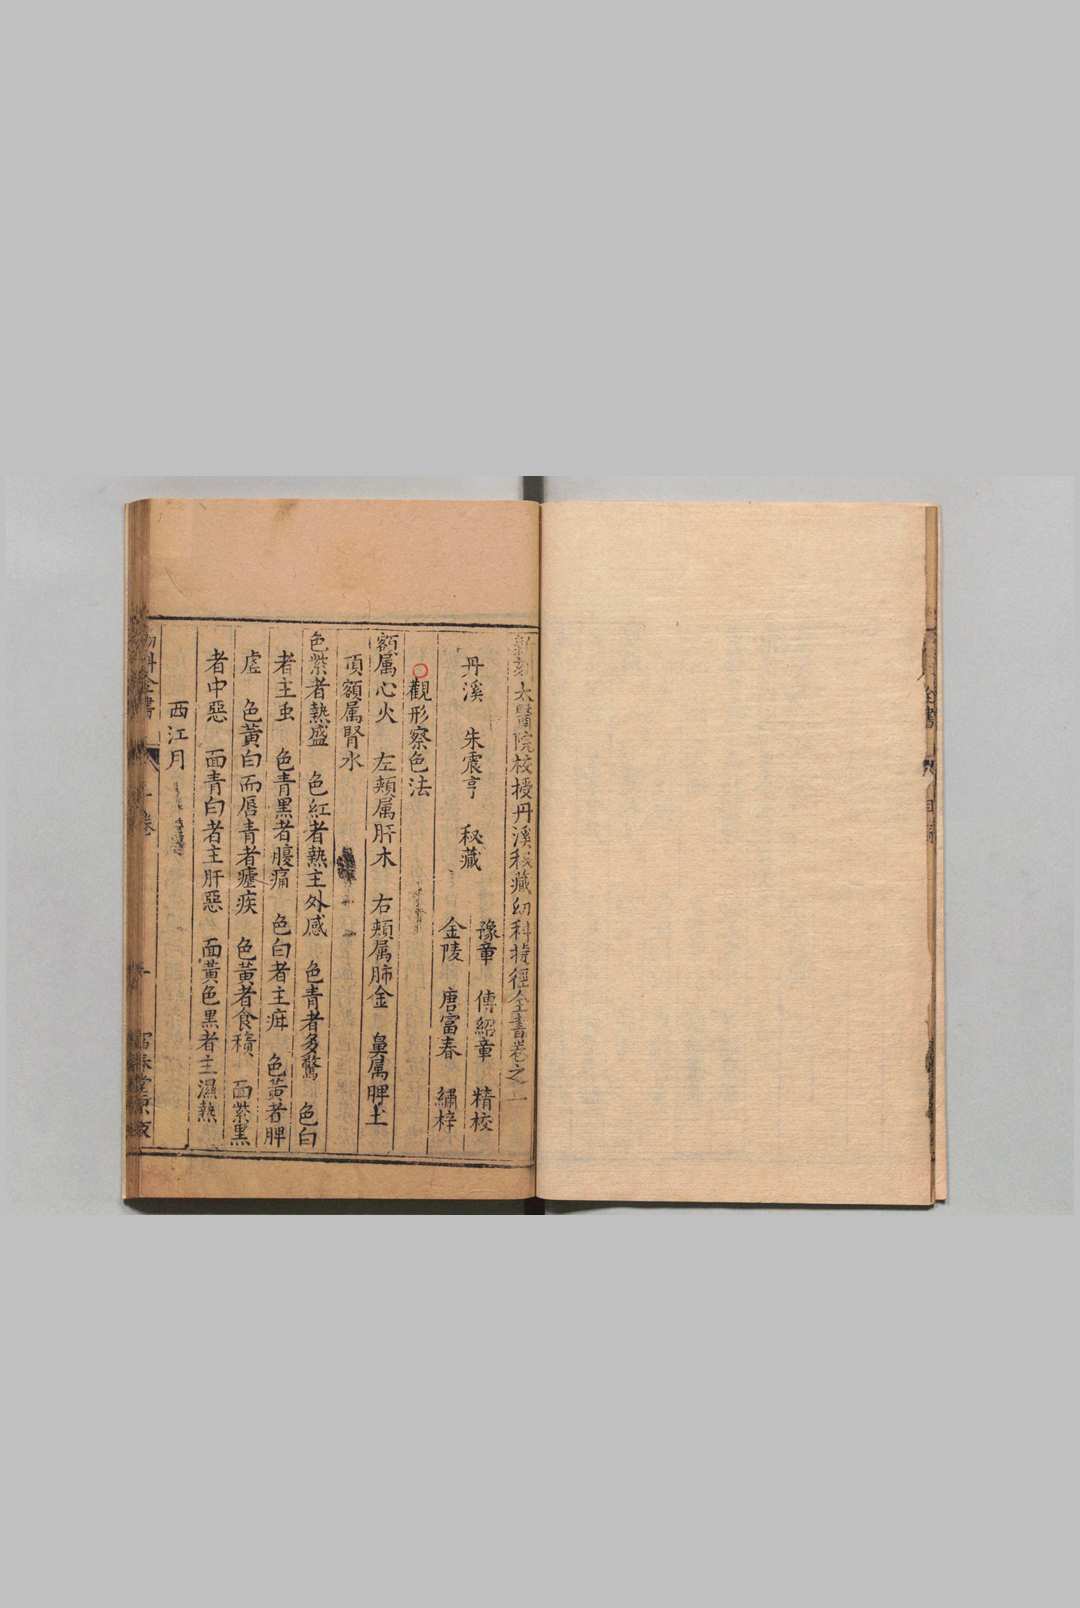 新刻太醫院校授丹溪秘藏幼科捷徑全書卷之一
丹溪 朱震亨 秘藏
豫章 傅紹章 精校
金陵 唐富春 繡梓
○觀形察色法
額属心火 左頬属肝木 右頬属肺金 鼻属脾土
頂額属腎水
色紫者熱盛 色紅者熱主外感 色青者多驚 色白
者主虫 色青黑者腹痛 色白者主疳 色黃者脾
虚 色黃白而唇青者瘧疾 色黃者食積 面紫黑
者中惡 面青白者主肝惡 面黃色黑者主濕熱
西江月
幼科全書 一卷
全書